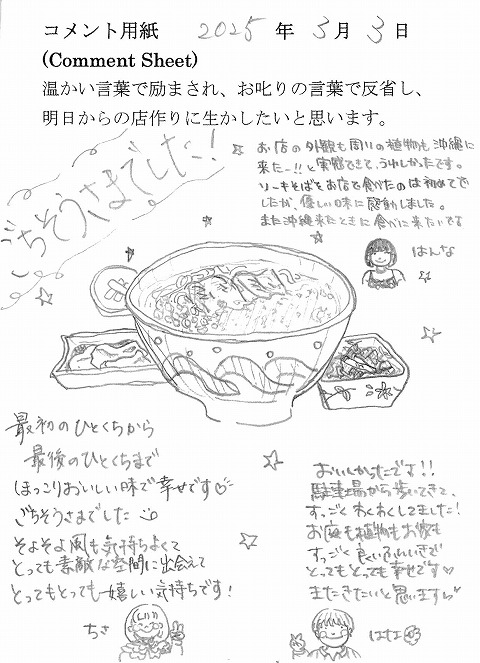 コメント用紙 2025 年 3月 3日
(Comment Sheet)
温かい言葉で励まされ、お叱りの言葉で反省し、
明日からの店作りに生かしたいと思います。
ごちそうさまでした!
お店の外観も周りの植物も沖縄に
来たー!!と実感できて、うれしかったです。
ソーキそばをお店で食べたのは初めてで
したが、優しい味に感動しました。
また沖縄来たときに食べに来たいです
はんな
最初のひとくちから
最後のひとくちまで
ほっこりおいしい味で幸せです♡
ごちそうさまでした
そよそよ風も気持ちよくて
とっても素敵な空間に出会えて
とってもとっても嬉しい気持ちです!
ちさ
おいしかったです!!
駐車場から歩いてきて、
すっごくわくわくしてました!
お庭も植物もお家も
すっごく良いふんいきで
とってもとっても幸せです♡
またきたいと思います
はな